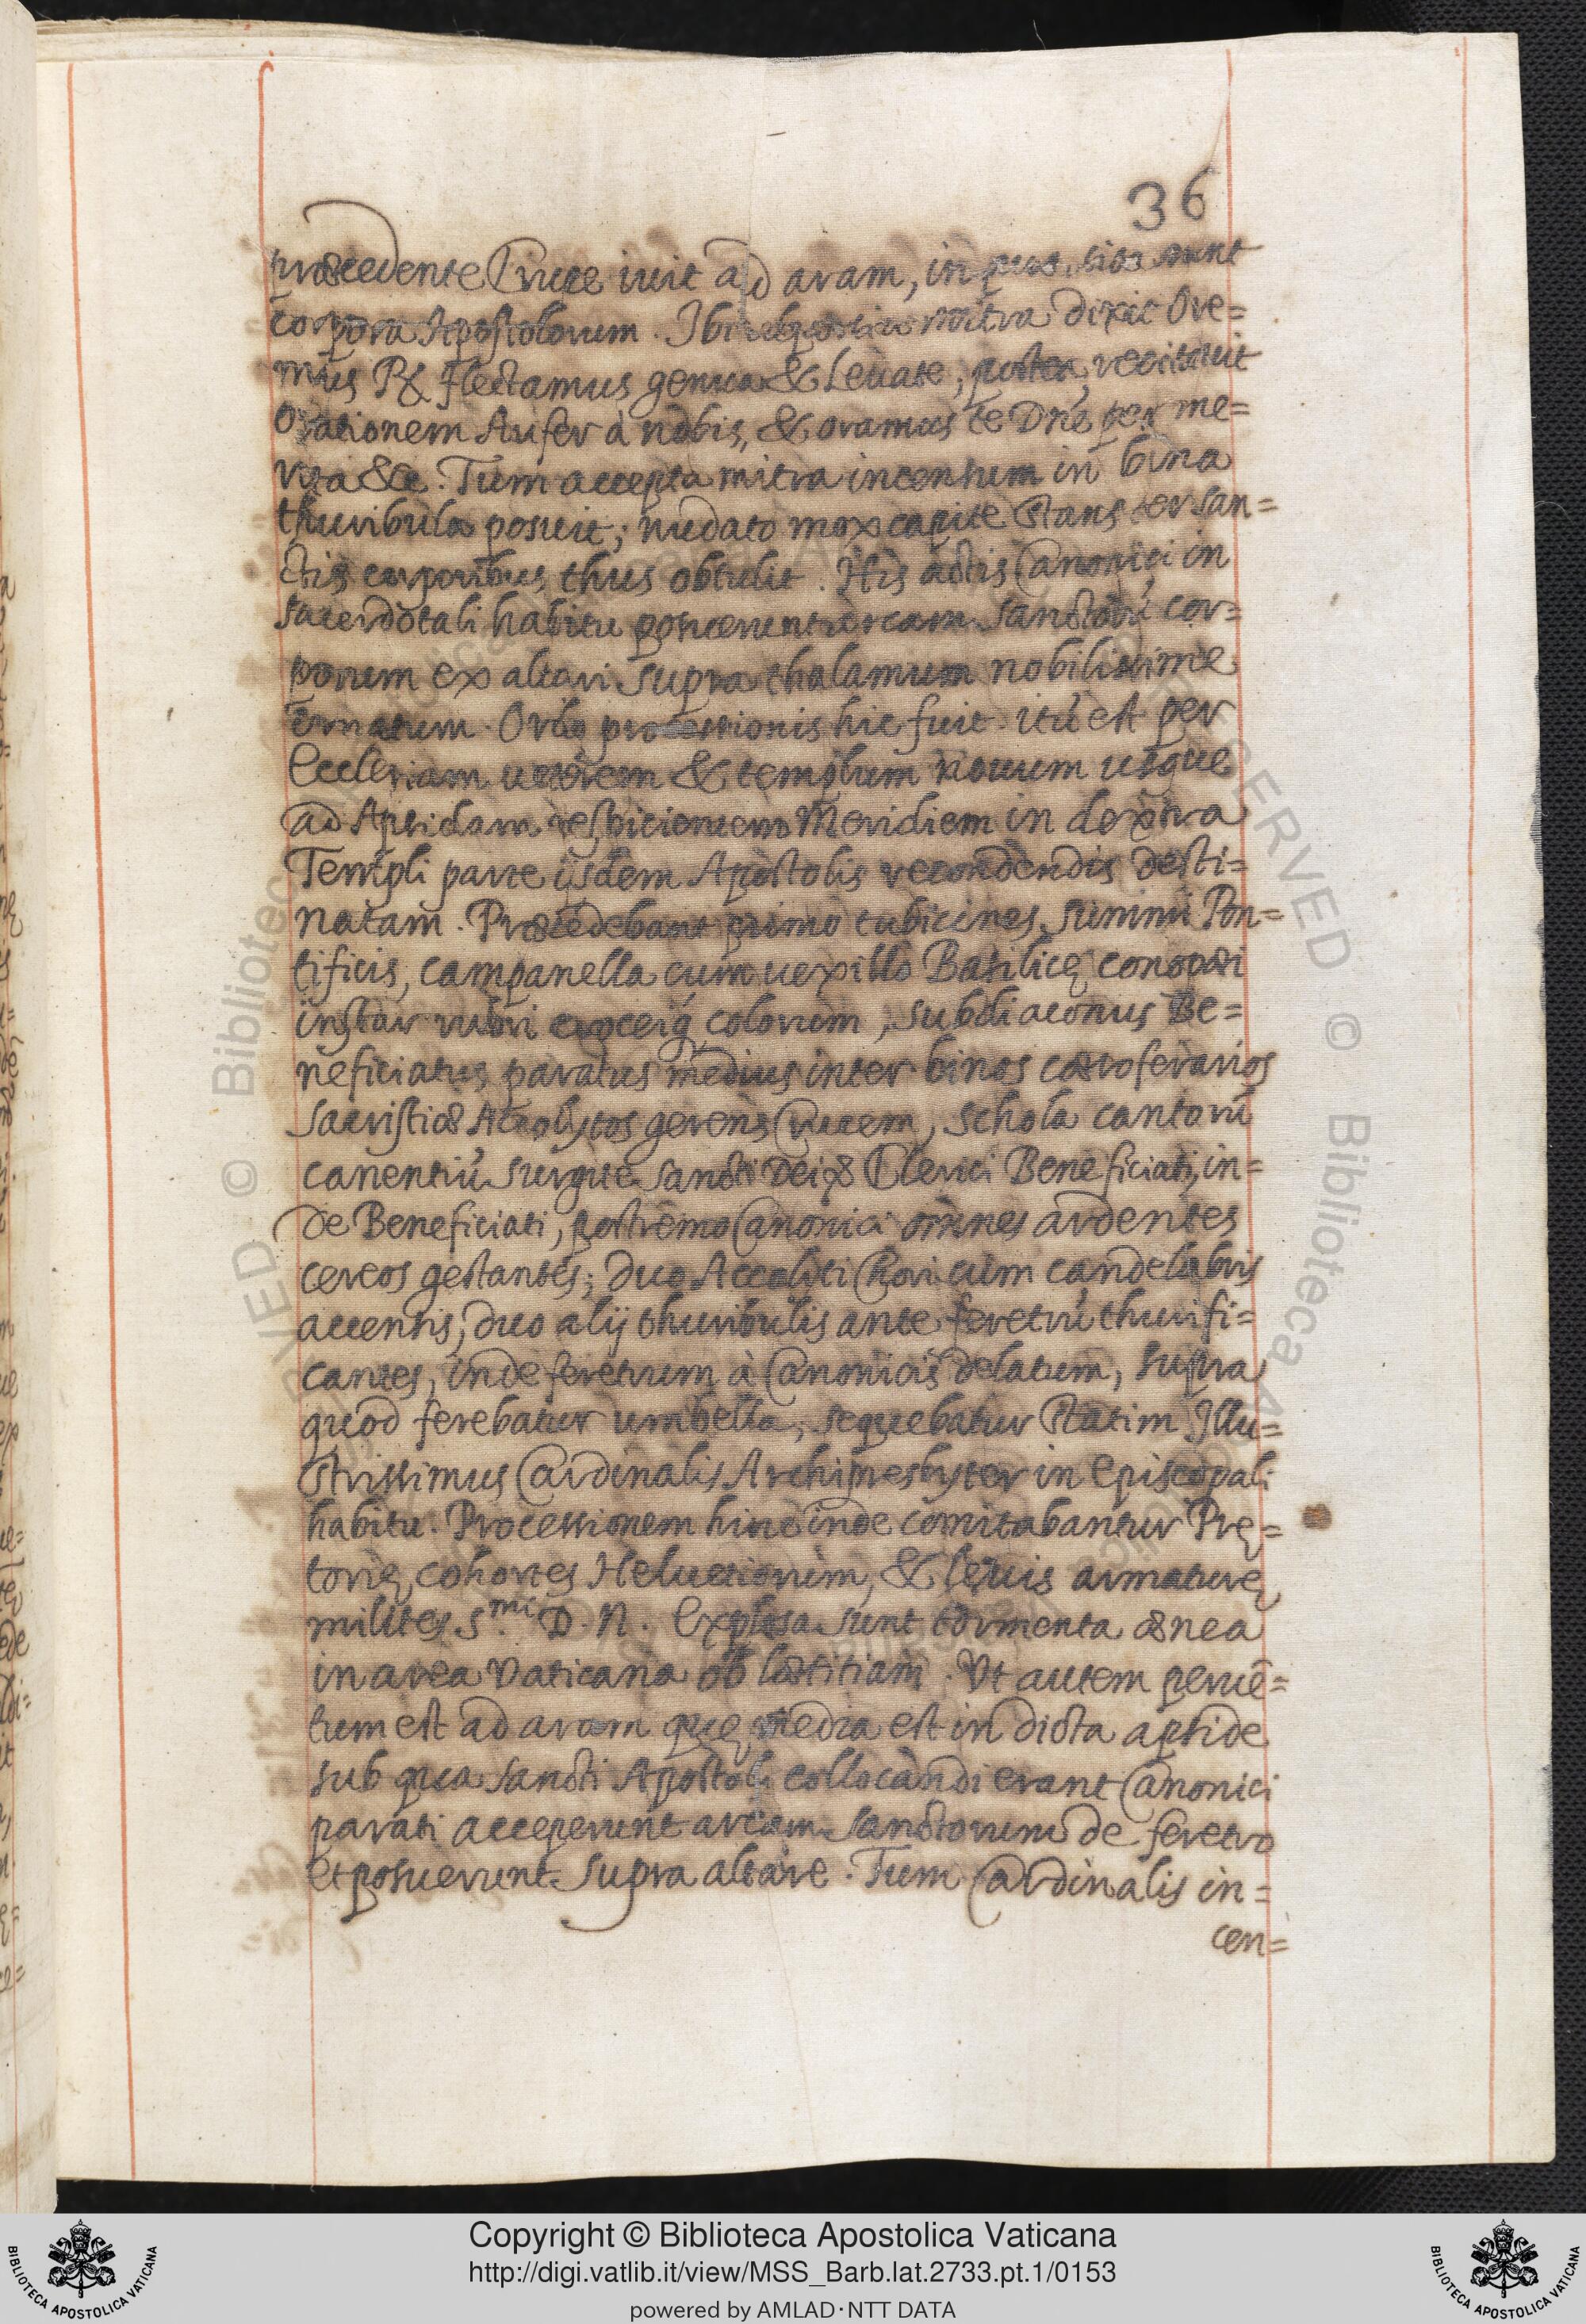 36
præcedente Cruce iuit ad aram, in qua sita sunt
corpora Apostolorum. Ibi mitra dixit Ore=
mus P& flectamus genua & Leuate, postea, recitauit
Orationem Aufer à nobis, & oramus te Dñe per me=
rita &c. Tum accepta mitra incensum in bina
thuribula posuit; nudato mox capite stans ter san=
ctis corporibus thus obtulit. His actis Canonici in
sacerdotali habitu posuerunt arcam sanctorū cor=
porum ex altari supra thalamum nobilissime
ornatum. Ordo processionis hic fuit. itū est per
Ecclesiam ueterem & templum nouum usque
ad Apsidam respicientem Meridiem in dextra
Templi parte ijsdem Apostolis recondendis desti=
natam. Præcedebant primo tubicines summi Pon=
tificis, campanella cum uexillo Basilicę conopæi
instar rubri croceiq́ colorum, subdiaconus Be=
neficiatus paratus medius inter binos cæroferarios
sacristiæ Accolytos gerens Crucem, schola cantorū
canentiū surgite sancti Dei & Clerici Beneficiati, in=
de Beneficiati, postremo Canonici omnes ardentes
cereos gestantes; duo Accoliti Chori cum candelabris
accensis, duo alij thuribulis ante feretrū thurifi=
cantes, inde feretrum à Canonicis delatum, supra
quod ferebatur umbella, sequebatur statim Illu=
strissimus Cardinalis Archipresbyter in episcopali
habitu. Processionem hinc inde comitabantur Prę=
torię cohortes Heluetiorum, & leuis armaturę
milites S.mi D. N. Explosa sunt tormenta ænea
in area Vaticana ob lætitiam. Vt autem peruē=
tum est ad aram quę media est in dicta apside
sub qua sancti Apostoli collocandi erant Canonici
parati acceperunt arcam sanctorum de feretro
et posuerunt supra altare. Tum Cardinalis in=
cen=
Copyright © Biblioteca Apostolica Vaticana
http://digi.vatlib.it/view/MSS_Barb.lat.2733.pt.1/0153
powered by AMLAD·NTT DATA
BIBLIOTECA APOSTOLICA VATICANA
BIBLIOTECA APOSTOLICA VATICANA